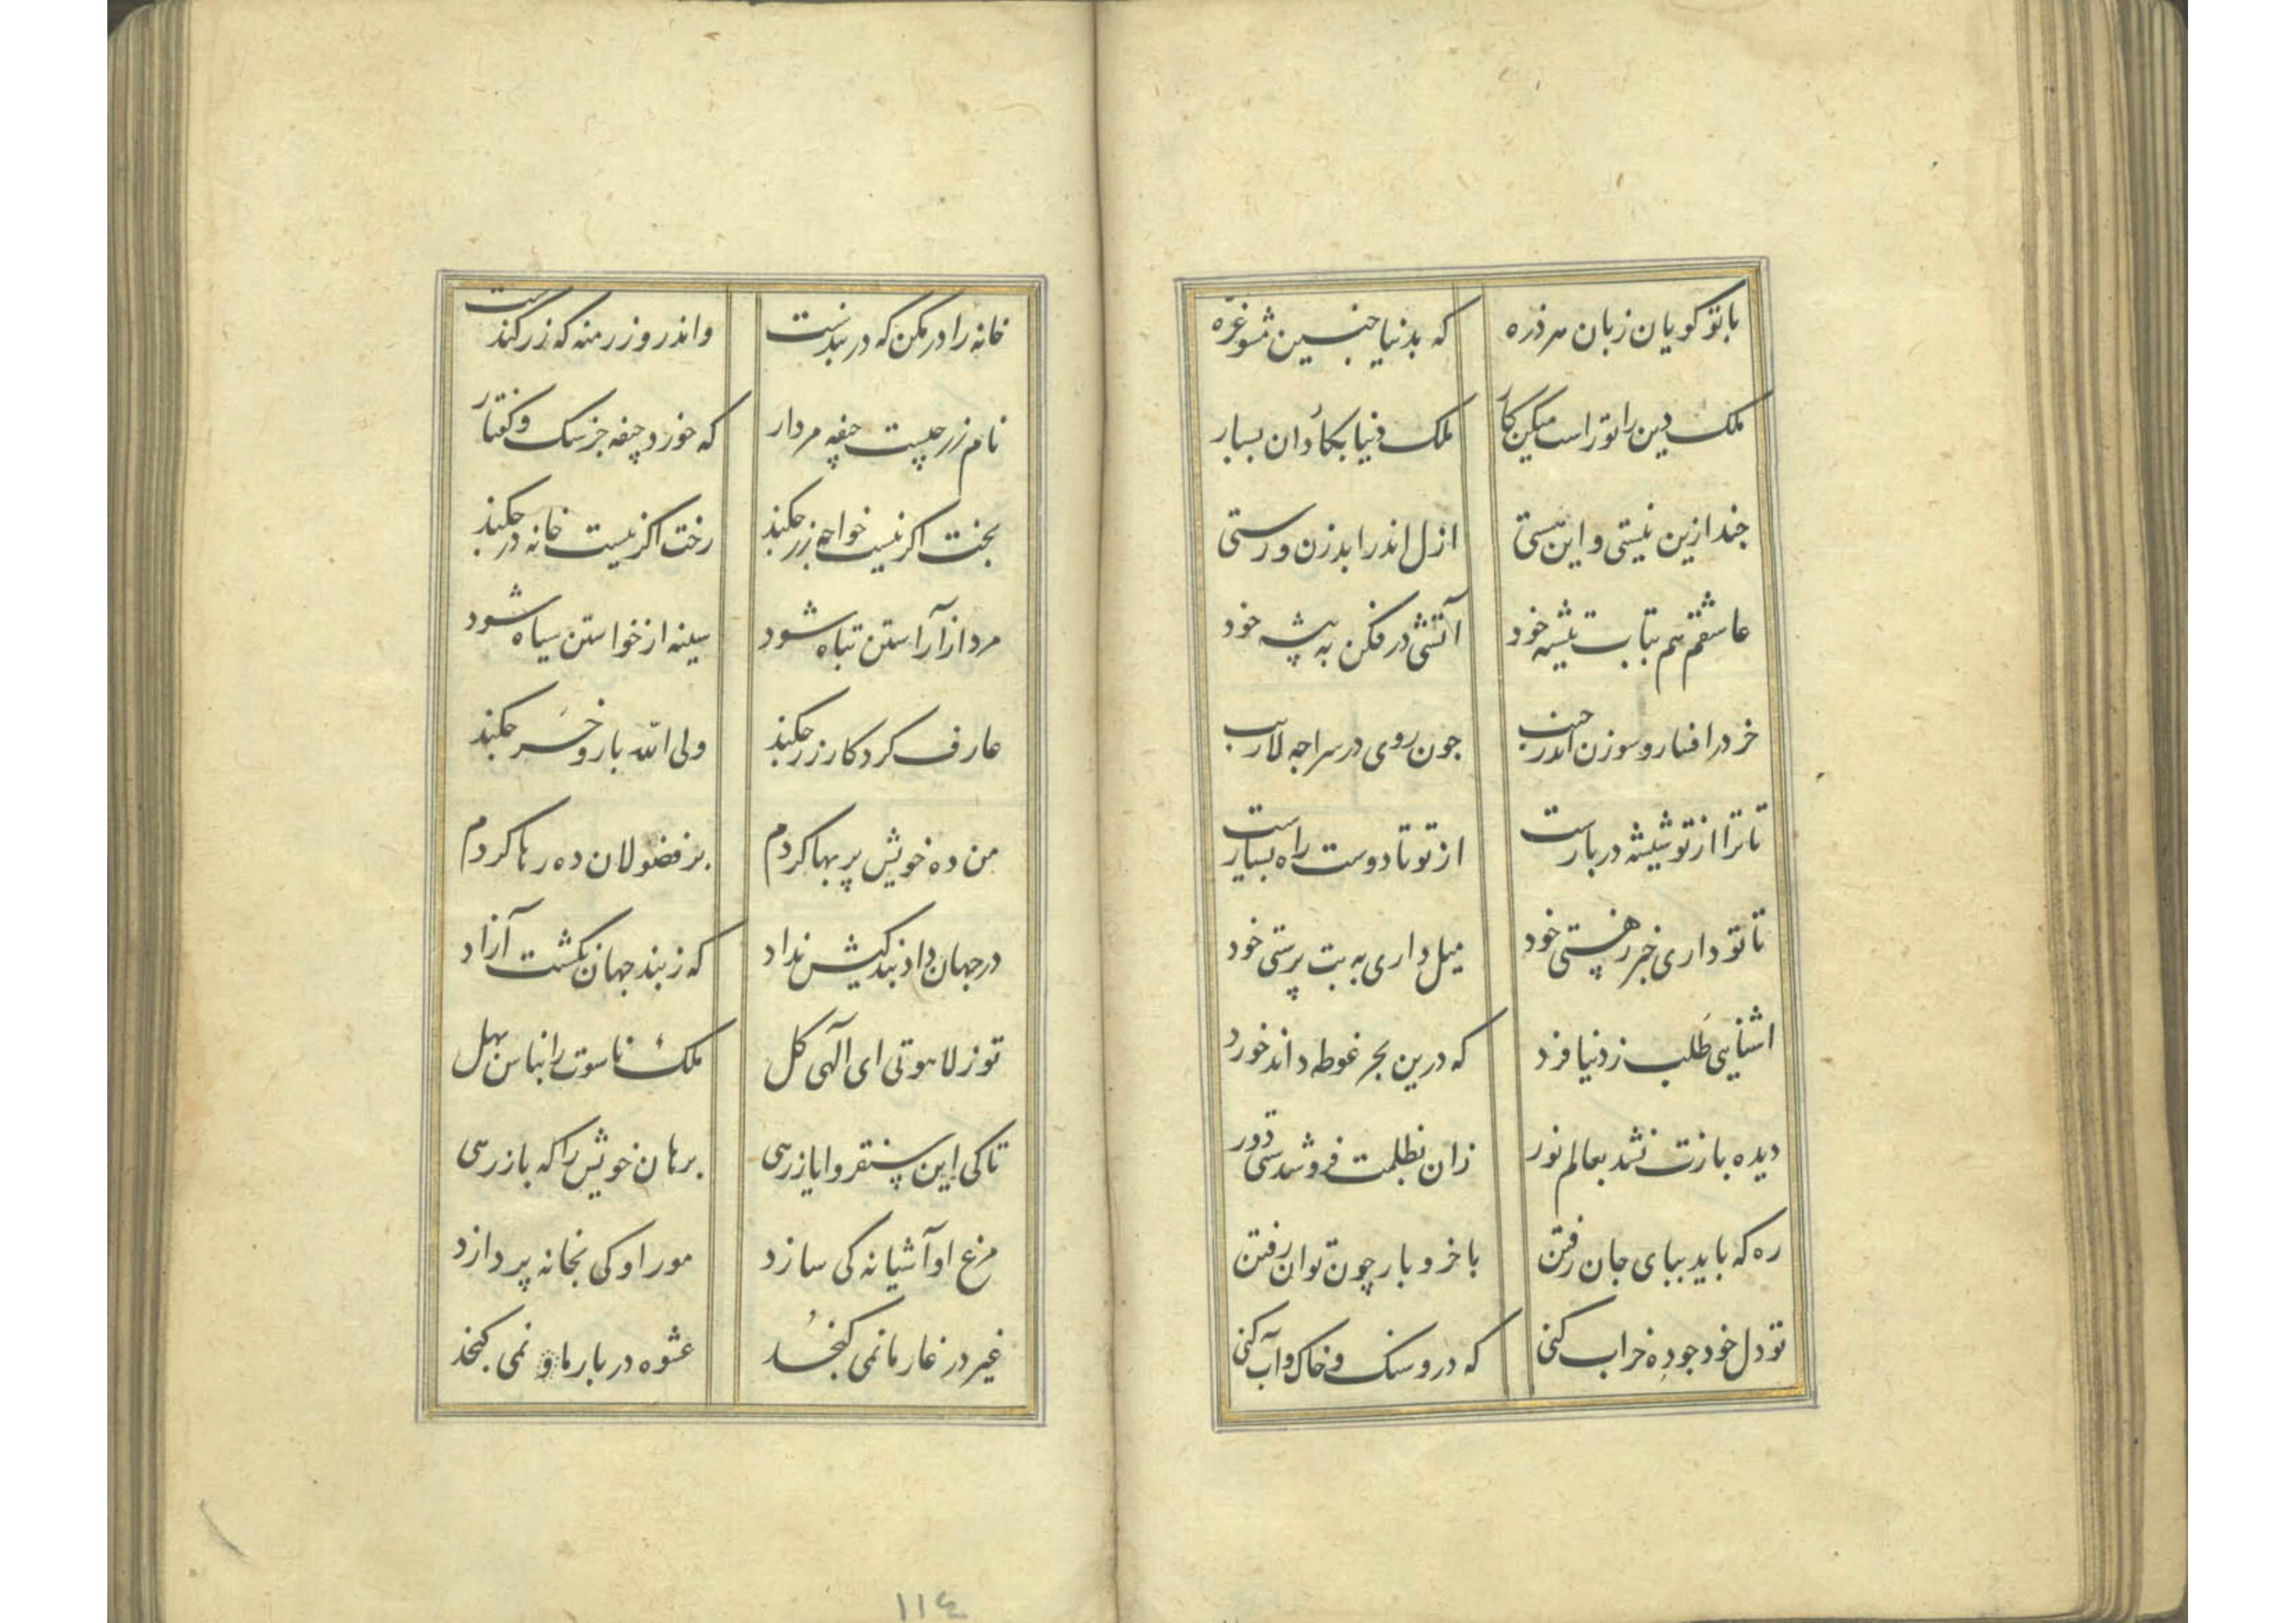 باتو کویان زبان هر ذره که بدنیا جنین مشو غره
ملک دین را تو راست میکن کار ملک دنیا بکاودان بسپار
جند ازین نیستی و این هستی از ازل اندر ابد زن و رستی
عاشقم هم بتابت تیشه خود آتشی در فکن به پیشه خود
خر در افتار و سوزن اندر جیب جون روی در سراجه لاریب
تا ترا از تو شیشه در بارست از تو تا دوست راه بسیارست
تا تو داری خبر ز هستی خود میل داری به بت پرستی خود
اشنایی طلب ز دنیا فرد که درین بحر غوطه داند خورد
دیده بازت نشد بعالم نور زان بظلمت فروشدستی دور
ره که باید بپای جان رفتن با خر و بار چون توان رفتن
تو دل خود جوده خراب کنی که درو سنک و خاک و آب کنی
خانه را در مکن که در بندست واندرو زر منه که زر کندست
نام زر چیست جیفه مردار که خورد جیفه جز سک و کفتار
بخت اکر نیست خواجه زر جکند رخت اکر نیست خانه در جکند
مرد از آراستن تباه شود سینه از خواستن سیاه شود
عارف کردکار زر جکند ولی الله بار و خر جکند
من ده خویش پر بها کردم بر فضولان ده رها کردم
در جهان داد بندکیش نداد که ز بند جهان نکشت آزاد
تو ز لاهوتی ای آلهی کل ملک ناسوت را بناس بهل
تا کی این سنقر و ایازرهی برهان خویش را که بازرهی
مرغ او آشیانه کی سازد مور او کی بخانه پردازد
غیر در غار ما نمی کنجد عشوه در بار ما و نمی کنجد
۱۱۴